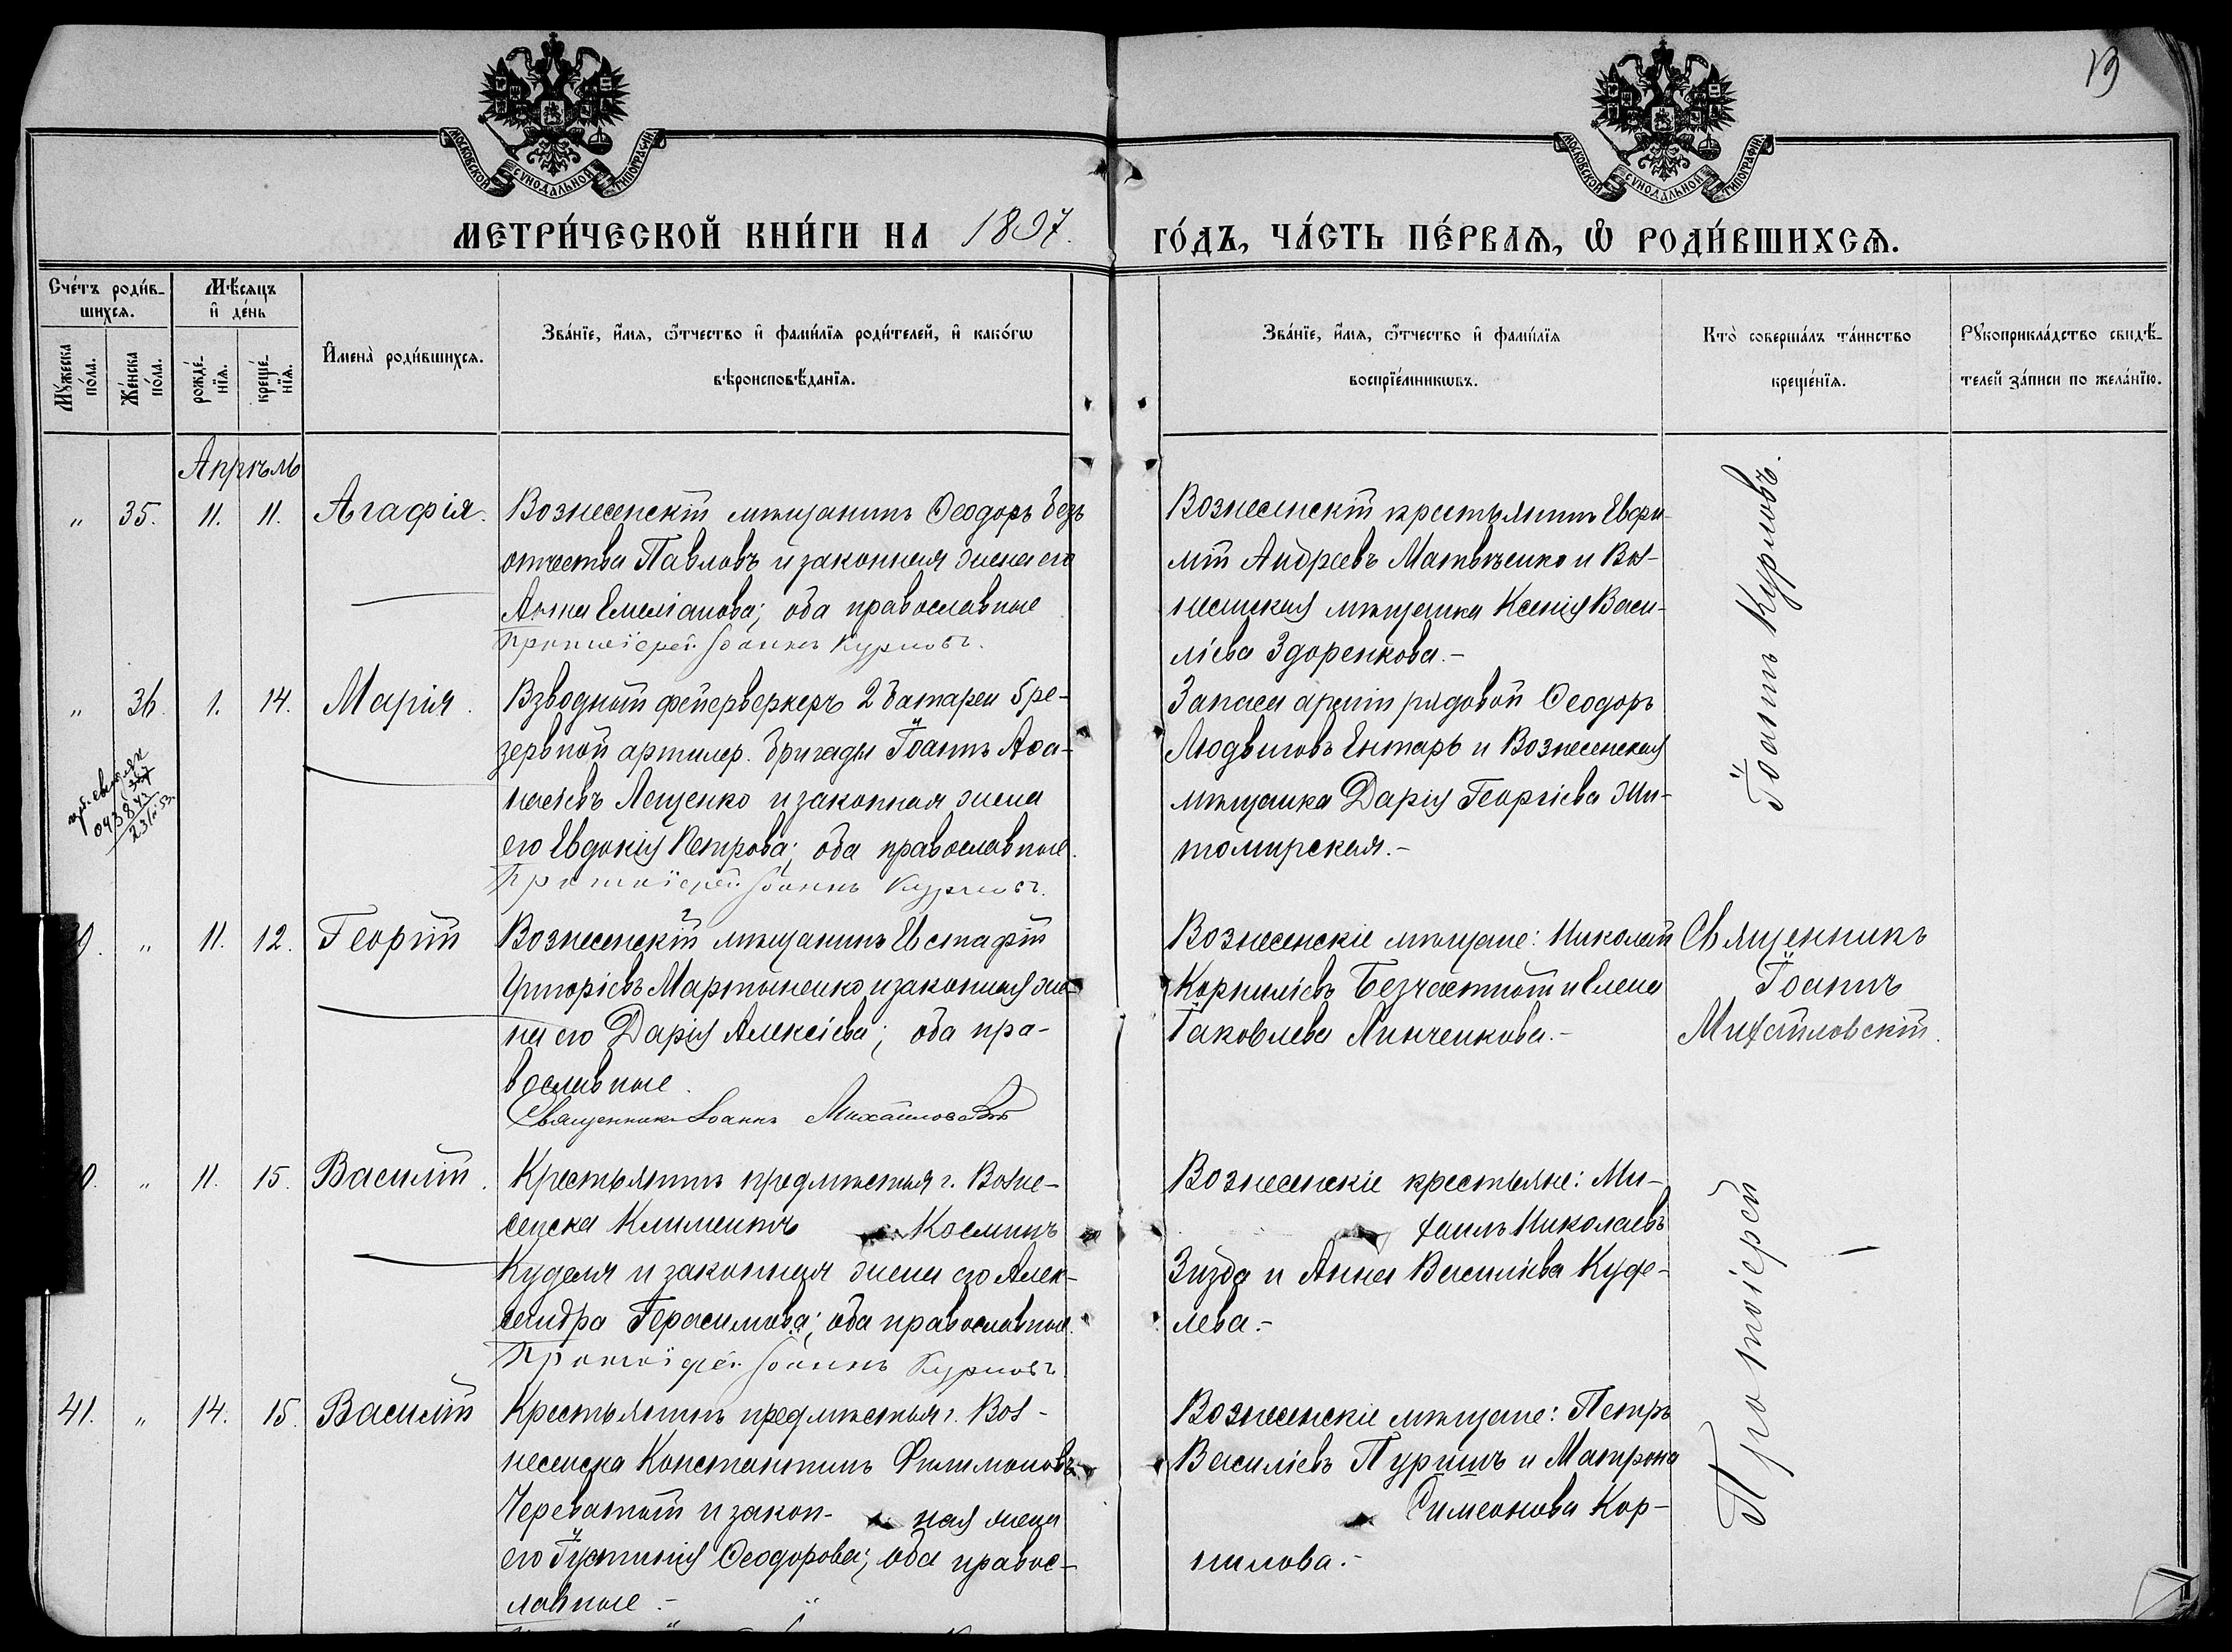 19
МОСКОВСКОЙ СѴНОДАЛЬНОЙ ТИПОГРАФІИ
МОСКОВСКОЙ СѴНОДАЛЬНОЙ ТИПОГРАФІИ
МЕТРИ́ЧЕСКОЙ КНИ́ГИ НА 1897.
ГО́ДЪ, ЧА́СТЬ ПЕ́РВАѦ, Ѽ РОДИ́ВШИХСѦ.
Сче́тъ роди́в-
шихсѧ.
Мꙋ́жеска
по́ла.
Же́нска
по́ла.
Мѣ́сѧцъ
и҆ де́нь
рожде́-
нїѧ.
креще́-
нїѧ.
И҆мена̀ роди́вшихсѧ.
Зва́нїе, и҆́мѧ, ѻ҆́тчество и҆ фами́лїѧ роди́телей, и҆ како́гѡ
вѣроисповѣ́данїѧ.
Зва́нїе, и҆́мѧ, ѻ҆́тчество и҆ фами́лїѧ
воспрїе́мникѡвъ.
Кто̀ соверша́лъ та́инство
креще́нїѧ.
Рꙋкоприкла́дство свидѣ́-
телей за́писи по жела́нїю.
Апрѣль
" 35. 11. 11. Агафія.
Вознесенскій мѣщанинъ Ѳеодоръ безъ
отчества Павловъ и законная жена его
Анна Емеліанова; оба православные
Протоіерей Іоаннъ Курловъ.
Вознесенскій крестьянинъ Евфи-
мій Андреевъ Матвѣенко и Воз-
несенская мѣщанка Ксенія Васи-
ліева Здоренкова.-
" 36. 1. 14. Марія.
Взводный фейерверкеръ 2 батареи 5 ре-
зервной артилер. бригады Іоаннъ Аѳа-
насіевъ Лещенко и законная жена
его Евдокія Петрова; оба православные.
Протоіерей Іоаннъ Курловъ.
Запаса арміи рядовой Ѳеодоръ
Людвиговъ Ентарь и Вознесенская
мѣщанка Дарія Георгіева Жи-
томирская.-
" 11. 12. Георгій
Вознесенскій мѣщанинъ Евстафій
Григоріевъ Мартыненко и законная же-
на его Дарія Алексіева; оба пра-
вославные.
Священникъ Іоаннъ Михайловскій
Вознесенскіе мѣщане: Николай
Корниліевъ Безчастный и Елена
Іаковлева Линченкова.-
Священникъ
Іоаннъ
Михайловскій.
" 11. 15. Василій.
Крестьянинъ предмѣстья г. Возне-
сенска Климентъ Косминъ
Куделя и законная жена его Алек-
сандра Герасимова; оба православные.
Протоіерей Іоаннъ Курловъ
Вознесенскіе крестьяне: Ми-
хаилъ Николаевъ
Зизда и Анна Василіева Куде-
лева.-
41. " 14. 15. Василій
Крестьянинъ предмѣстья г. Воз-
несенска Константинъ Филимоновъ
Череватый и закон- ная жена
его Іустинія Ѳеодорова; оба правос-
лавные.-
Вознесенскіе мѣщане: Петръ
Василіевъ Пуришъ и Матрона
Симеонова Кор-
нилова.-
Протоіерей
Іоаннъ Курловъ.